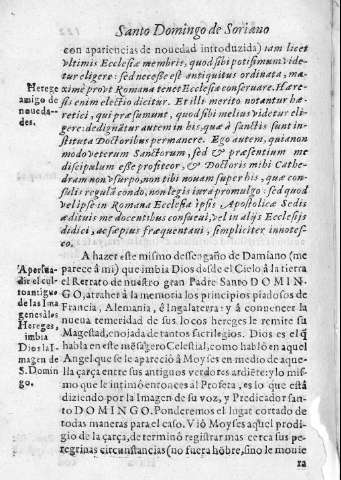 Santo Domingo de Soriano
con apariencias de nouedad introduzida) tam licet
vltimis Ecclesiæ membris, quod sibi potissimum vide
tur eligere: sed necesse est antiquitus ordinata, ma-
ximè prout Romana tenet Ecclesia conseruare. Hære-
sis enim electio dicitur. Et illi merito notantur hæ-
retici, qui præsumunt, quod sibi melius videtur eli-
gere: dedignātur autem in his, quæ à sanctis sunt in-
stituta Doctoribus permanere. Ego autem, quia non
modo veterum Sanctorum, sed & præsentium me
discipulum esse profiteor, & Doctoris mihi Cathe-
dram non vsurpo, non tibi nouam super his, quæ con-
sulis regulā condo, non legis iura promulgo: sed quod
vel ipse in Romana Ecclesia ipsis Apostolicæ Sedis
ædituis me docentibus consueui, vel in alijs Ecclesijs
didici, ac sæpius frequentaui, simpliciter innotes-
co.
Herege
amigo de
noueda-
des.
A hazer este mismo desengaño de Damiano (me
parece à mi) que imbia Dios desde el Cielo à la tierra
el Retrato de nuestro gran Padre Santo DOMIN-
GO, atraher à la memoria los principios piadosos de
Francia, Alemania, è Ingalaterra: y à conuencer la
nueua temeridad de sus locos hereges le remite su
Magestad, enojada de tantos sacrilegios. Dios es el q̄
habla en este mēsagero Celestial, como hablò en aquel
Angel que se le apareciò à Moyses en medio de aque-
lla çarça entre sus antiguos verdores ardiēte: y lo mis-
mo que le intimò entonces al Profeta, es lo que està
diziendo por la Imagen de su voz, y Predicador san-
to DOMINGO. Ponderemos el lugar cortado de
todas maneras para el caso. Viò Moyses aq̄l prodi-
gio de la çarça, determinò registrar mas cerca sus pe-
regrinas circunstancias (no fuera hōbre, sino le mouie
ra
A persua-
dir el cul-
to antiguo
de las Ima
genes à los
Hereges,
imbia
Dios la I-
magen de
S. Domin
go.